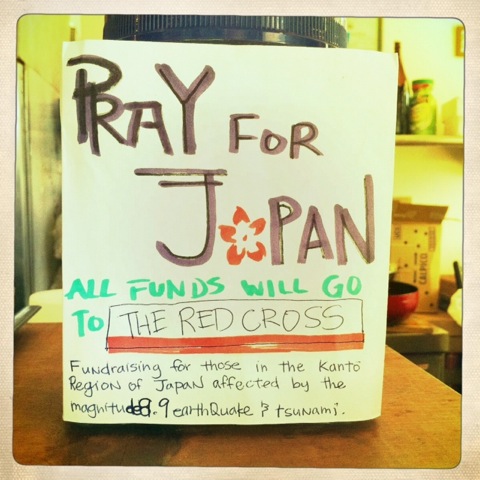 PRAY FOR
JAPAN
ALL FUNDS WILL GO
TO THE RED CROSS
Fundraising for those in the Kanto
Region of Japan affected by the
magnitude 8.9 earthquake & tsunami.
CALPICO